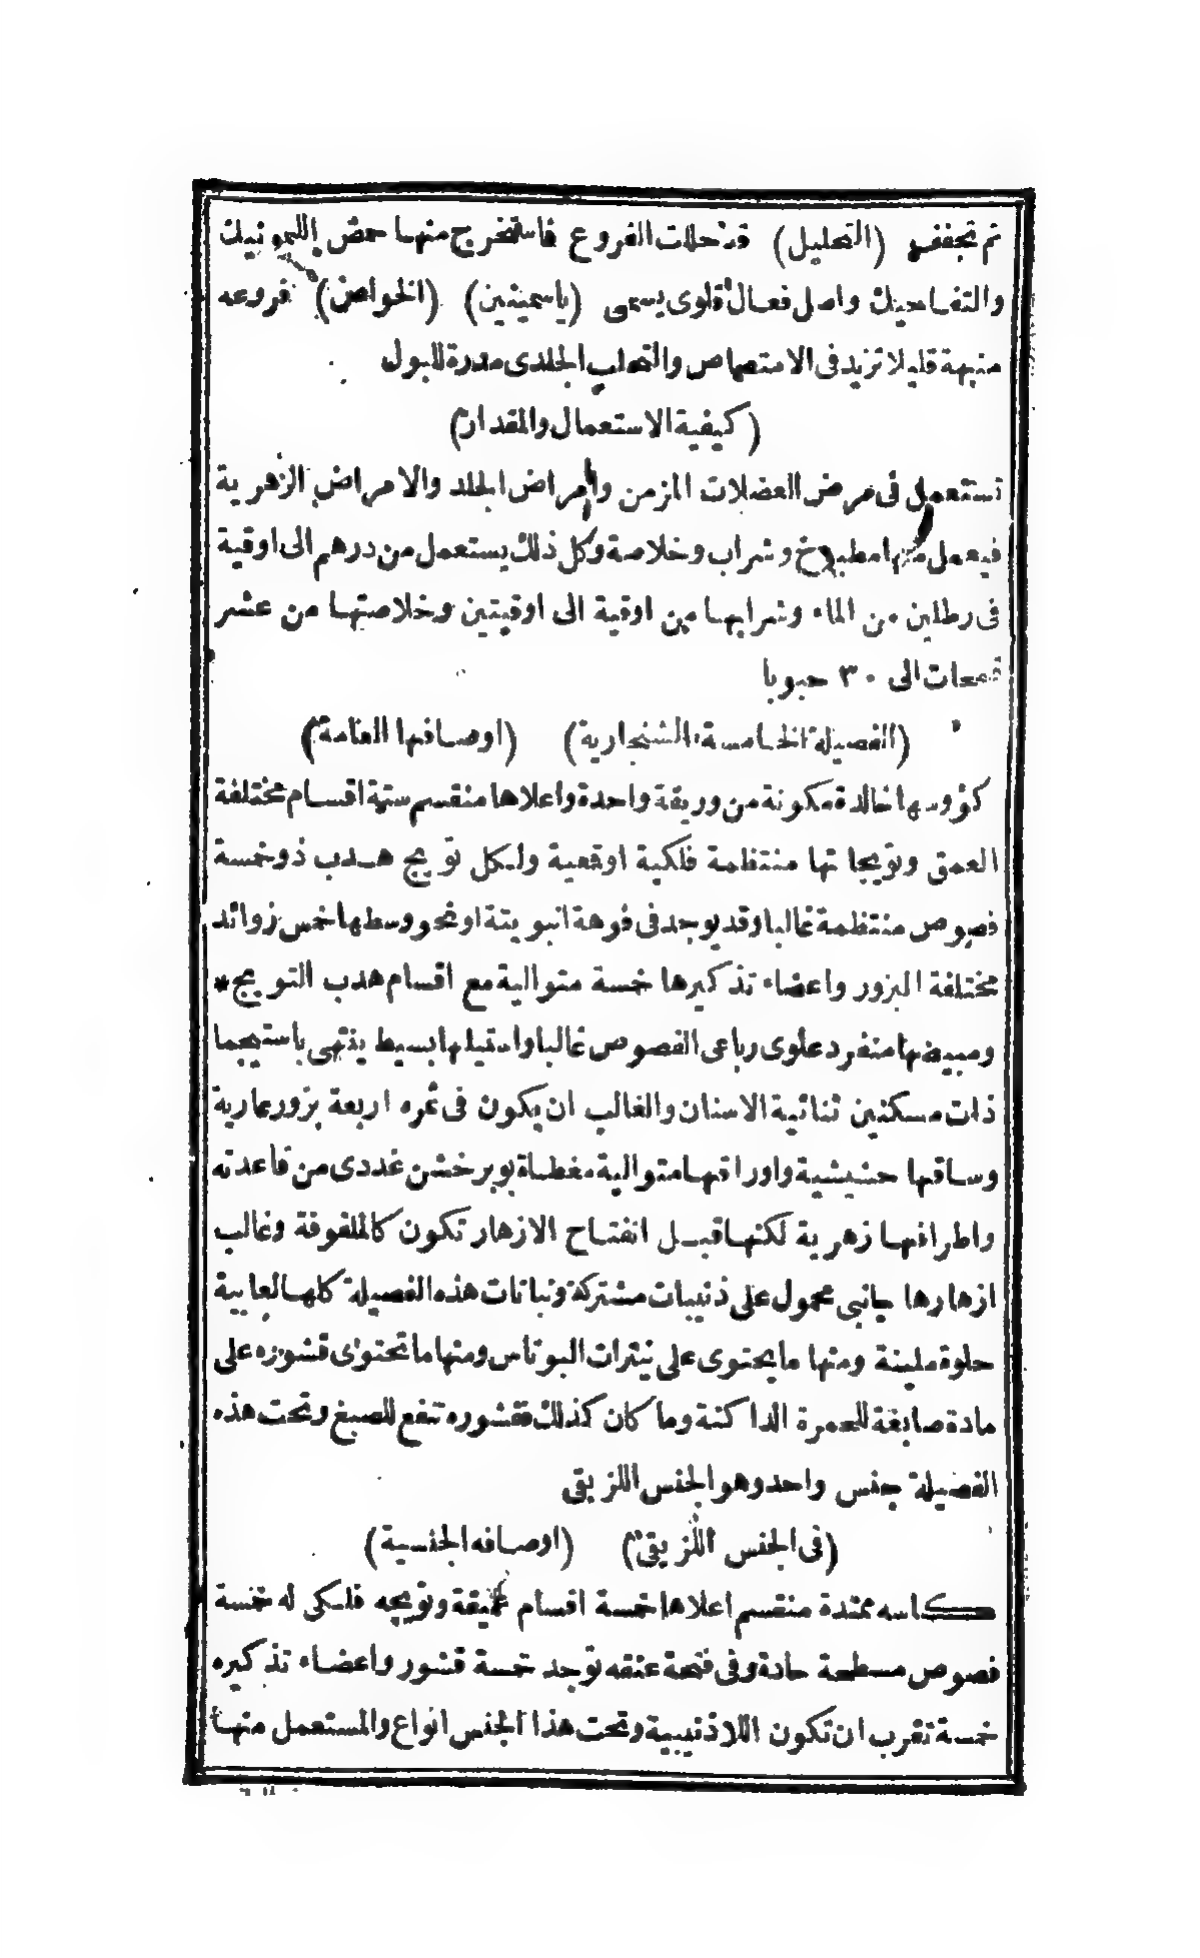 ثم تجفف (التحليل) قد حلات الفروع فاستخرج منها حمض الليمونيك
والتفاحيك واصل فعال قلوى يسمى (ياسمينين) (الخواص) فروعه
منبهة قليلا تزيد فى الامتصاص والتحلب الجلدى مدرة للبول
(كيفية الاستعمال والمقدار)
تستعمل فى مرض العضلات المزمن وامراض الجلد والامراض الزهرية
فيعمل منها مطبوخ وشراب وخلاصة وكل ذلك يستعمل من درهم الى اوقية
فى رطلين من الماء وشرابها من اوقية الى اوقيتين وخلاصتها من عشر
قمحات الى ٣٠ حبوبا
(الفصيلة الخامسة الشنجارية) (اوصافها العامة)
كؤوسها خالدة مكونة من وريقة واحدة واعلاها منقسم ستة اقسام مختلفة
العمق وتويجاتها منتظمة فلكية اوقعية ولكل تويج هدب ذو خمسة
فصوص منتظمة غالبا وقد يوجد فى فوهة انبوبتة او نحو وسطها خمس زوائد
مختلفة البزور واعضاء تذكيرها خمسة متوالية مع اقسام هدب التويج *
ومبيضها منفرد علوى رباعى الفصوص غالبا واستيلها بسيط ينتهى باستيجما
ذات مسكنين ثنائية الاسنان والغالب ان يكون فى ثمره اربعة بزور عمارية
وساقها حشيشية واوراقها متوالية مغطاة بوبر خشن غددى من قاعدته
واطرافها زهرية لكنها قبل انفتاح الازهار تكون كالملفوفة وغالب
ازهارها جانبى محمول على ذنيبات مشتركة ونباتات هذه الفصيلة كلها لعابية
حلوة ملينة ومنها ما يحتوى على نيترات البوتاس ومنها ما تحتوى قشوره على
مادة صابغة للحمرة الداكنة وما كان كذلك فقشوره تنفع للصبغ وتحت هذه
الفصيلة جنس واحد وهو الجنس اللزيقى
(فى الجنس اللزيقى) (اوصافه الجنسية)
كاسه ممتدة منقسم اعلاها خمسة اقسام عميقة وتويجه فلكى له خمسة
فصوص مسطحة حادة وفى فتحة عنقه توجد خمسة قشور واعضاء تذكيره
خمسة تقرب ان تكون اللاذنيبية وتحت هذا الجنس انواع والمستعمل منها